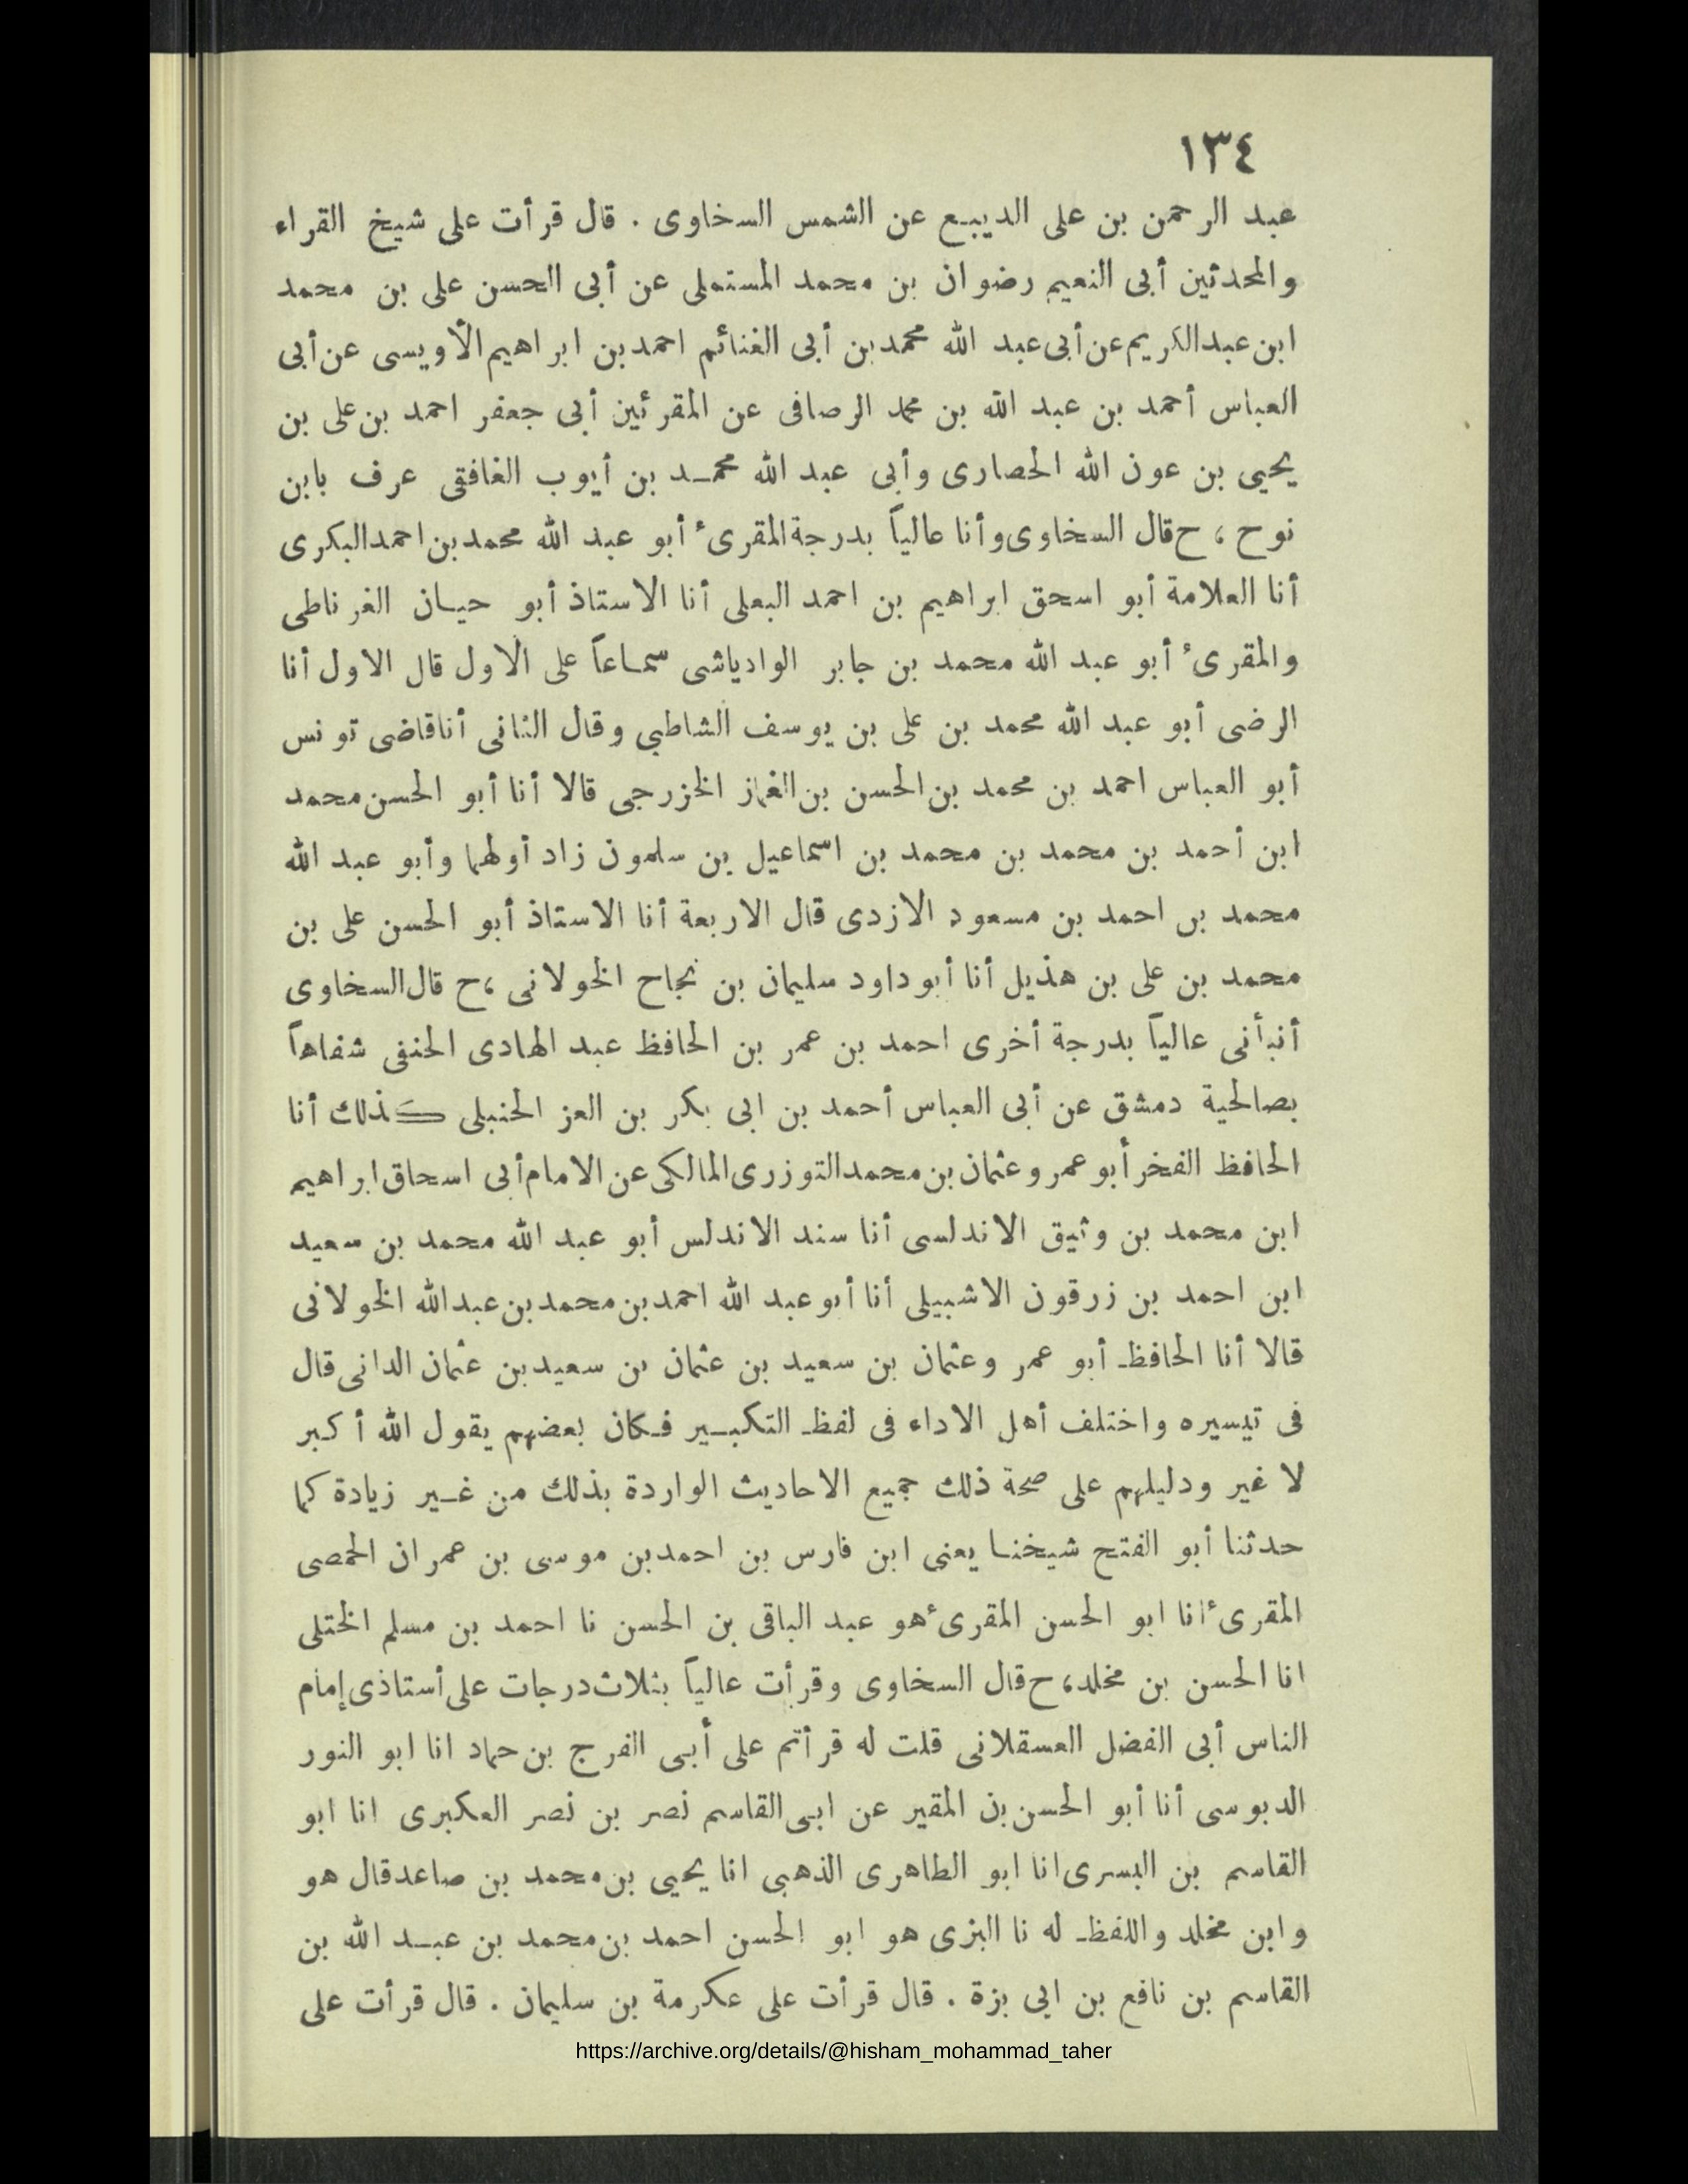 ١٣٤
عبد الرحمن بن على الديبع عن الشمس السخاوى . قال قرأت على شيخ القراء
والمحدثين أبى النعيم رضوان بن محمد المستملى عن أبى الحسن على بن محمد
ابن عبدالكريم عن أبى عبد الله محمد بن أبى الغنائم احمد بن ابراهيم الأويسى عن أبى
العباس أحمد بن عبد الله بن محمد الرصافى عن المقرئين أبى جعفر احمد بن على بن
يحيى بن عون الله الحصارى وأبى عبد الله محمد بن أيوب الغافقى عرف بابن
نوح ، ح قال السخاوى وأنا عالياً بدرجة المقرىء أبو عبد الله محمد بن احمد البكرى
أنا العلامة أبو اسحق ابراهيم بن احمد البعلى أنا الاستاذ أبو حيان الغرناطى
والمقرىء أبو عبد الله محمد بن جابر الوادياشى سماعاً على الاول قال الاول أنا
الرضى أبو عبد الله محمد بن على بن يوسف الشاطبي وقال الثانى أنا قاضى تونس
أبو العباس احمد بن محمد بن الحسن بن الغماز الخزرجى قالا أنا أبو الحسن محمد
ابن أحمد بن محمد بن محمد بن اسماعيل بن سلمون زاد أولهما وأبو عبد الله
محمد بن احمد بن مسعود الازدى قال الاربعة أنا الاستاذ أبو الحسن على بن
محمد بن على بن هذيل أنا أبو داود سليمان بن نجاح الخولانى ، ح قال السخاوى
أنبأنى عالياً بدرجة أخرى احمد بن عمر بن الحافظ عبد الهادى الحنفى شفاهاً
بصالحية دمشق عن أبى العباس أحمد بن ابى بكر بن العز الحنبلى كذلك أنا
الحافظ الفخر أبو عمر وعثمان بن محمد التوزرى المالكى عن الامام أبى اسحاق ابراهيم
ابن محمد بن وثيق الاندلسى أنا سند الاندلس أبو عبد الله محمد بن سعيد
ابن احمد بن زرقون الاشبيلى أنا أبو عبد الله احمد بن محمد بن عبد الله الخولانى
قالا أنا الحافظ أبو عمر وعثمان بن سعيد بن عثمان بن سعيد بن عثمان الدانى قال
فى تيسيره واختلف أهل الاداء فى لفظ التكبير فكان بعضهم يقول الله أكبر
لا غير ودليلهم على صحة ذلك جميع الاحاديث الواردة بذلك من غير زيادة كما
حدثنا أبو الفتح شيخنا يعنى ابن فارس بن احمد بن موسى بن عمران الحمصى
المقرىء انا ابو الحسن المقرىء هو عبد الباقى بن الحسن نا احمد بن مسلم الختلى
انا الحسن بن مخلد، ح قال السخاوى وقرأت عالياً بثلاث درجات على أستاذى إمام
الناس أبى الفضل العسقلانى قلت له قرأتم على أبى الفرج بن حماد انا ابو النور
الدبوسى أنا أبو الحسن بن المقير عن ابى القاسم نصر بن نصر العكبرى انا ابو
القاسم بن البسرى انا ابو الطاهرى الذهبى انا يحيى بن محمد بن صاعد قال هو
وابن مخلد واللفظ له نا البزى هو ابو الحسن احمد بن محمد بن عبد الله بن
القاسم بن نافع بن ابى بزة . قال قرأت على عكرمة بن سليمان . قال قرأت على
https://archive.org/details/@hisham_mohammad_taher